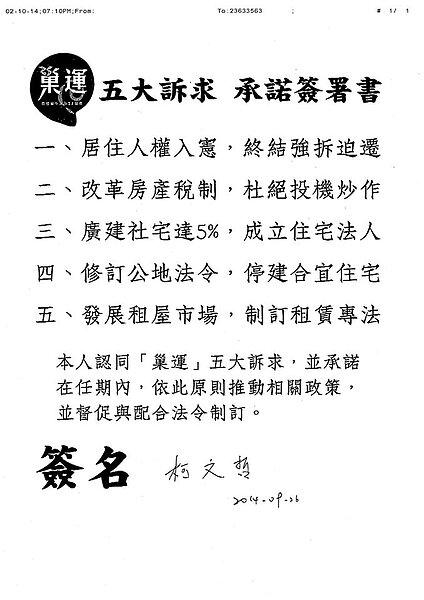 02-10-14;07:10PM;From: To:23633563 ; # 1/ 1
巢運
五大訴求 承諾簽署書
一、居住人權入憲，終結強拆迫遷
二、改革房產稅制，杜絕投機炒作
三、廣建社宅達5%，成立住宅法人
四、修訂公地法令，停建合宜住宅
五、發展租屋市場，制訂租賃專法
本人認同「巢運」五大訴求，並承諾
在任期內，依此原則推動相關政策，
並督促與配合法令制訂。
簽名 柯文哲
2014-09-26